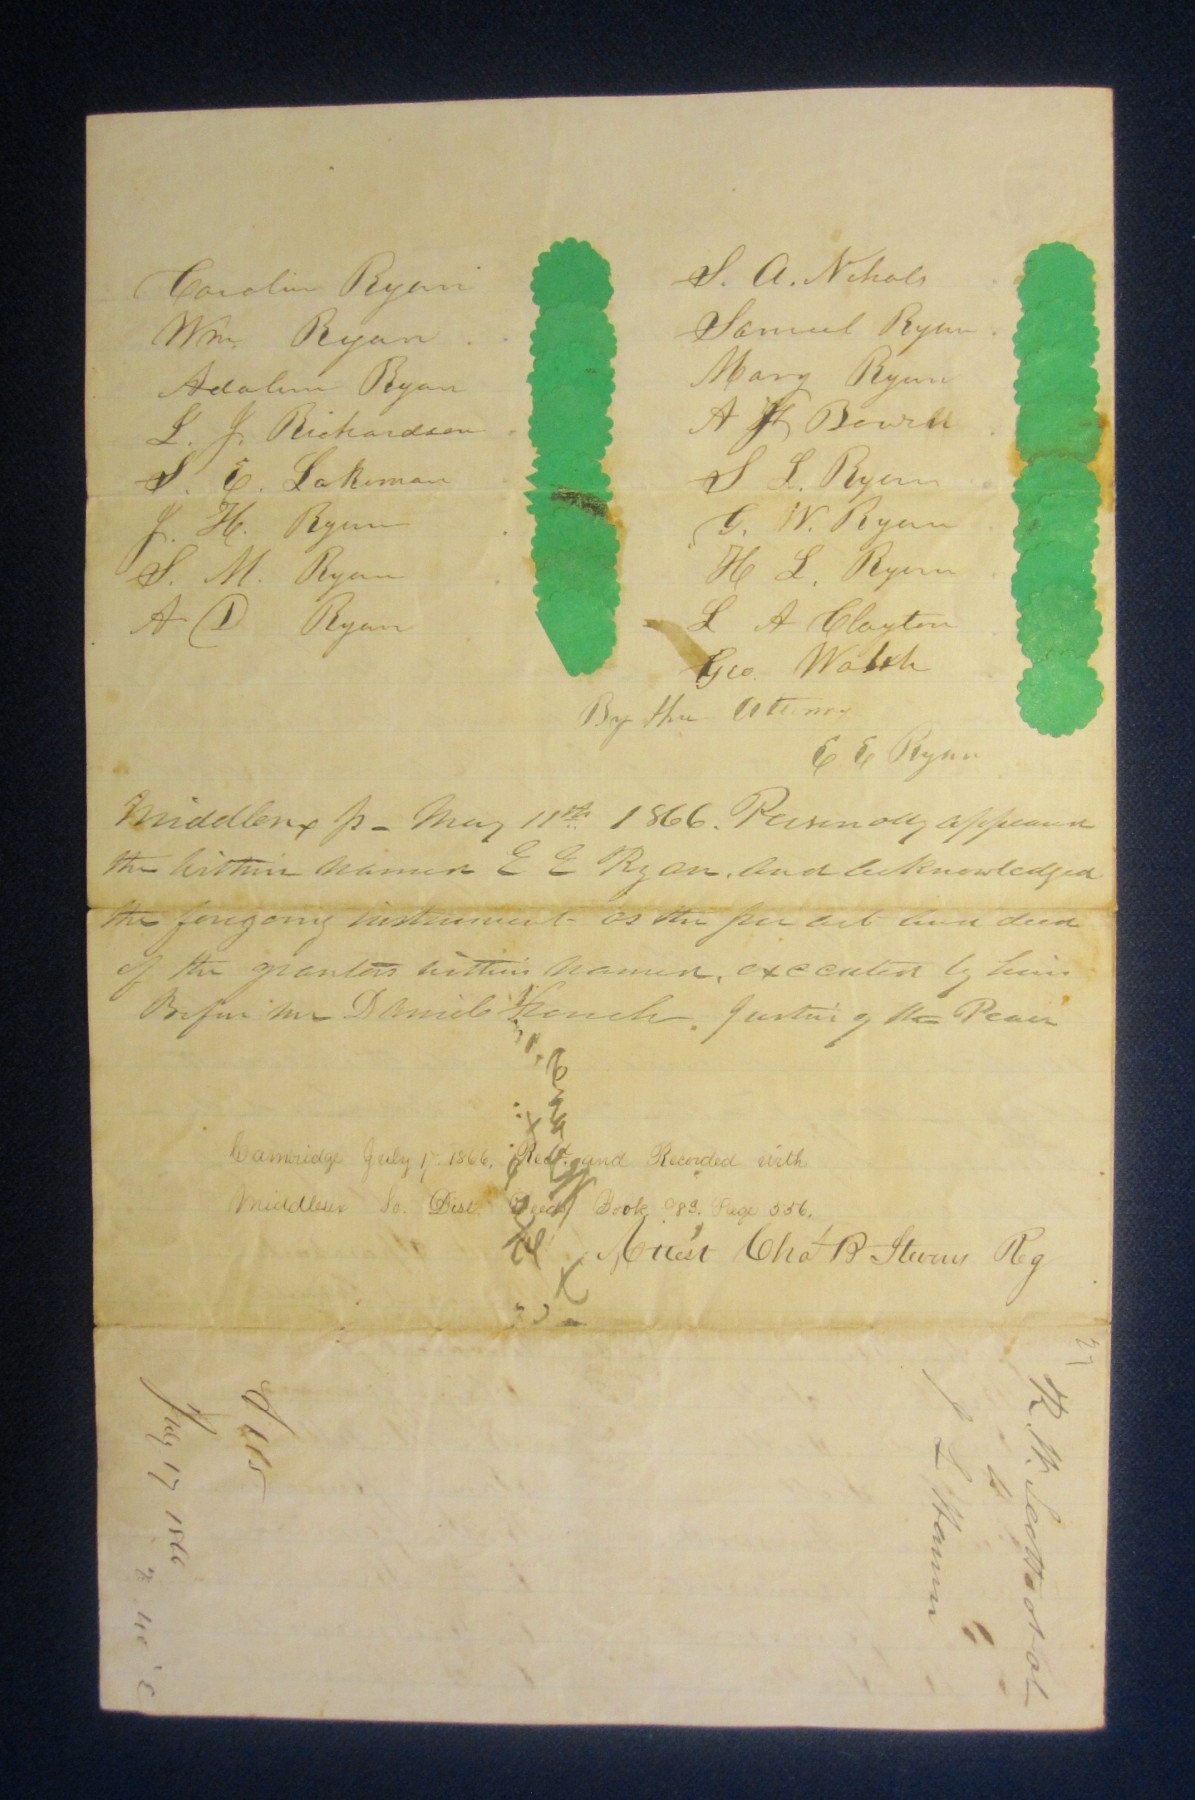 Carolin Ryan
Wm. Ryan
Adaline Ryan
L. J. Richardson
S. E. Lakeman
J. H. Ryan
S. M. Ryan
A D Ryan
S. A. Nichols
Samuel Ryan
Mary Ryan
A H Bowell
S L. Ryan
G. W. Ryan
H L. Ryan
L A Clayton
Geo. Walsh
By thr Attorney
E E Ryan
Middlesex ss - May 11th 1866. Personally appeared
the within named E E Ryan, and acknowledged
the foregoing instrument as the free act and deed
of the grantors within named, executed by him
Before me Daniel French. Justice of the Peace
Cambridge July 17. 1866. Recd. and Recorded with
Middlesex So. Dist. Deeds Book 983. Page 556.
Attest Chas B Stevens Reg
27
R. W. et al
to
J L
July 17 1866